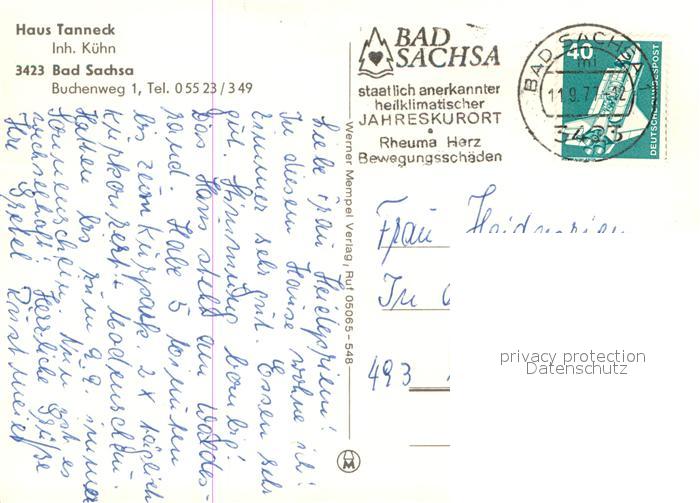 Haus Tanneck
Inh. Kühn
3423 Bad Sachsa
Buchenweg 1, Tel. 0 55 23 / 3 49
BAD
SACHSA
staatlich anerkannter
heilklimatischer
JAHRESKURORT
Rheuma Herz
Bewegungsschäden
BAD SACHSA 1
11.9.77
3423
40
DEUTSCHE BUNDESPOST
Werner Mempel Verlag, Ruf 05065-548
Liebe Frau
In diesem Hause wohne ich!
Zimmer sehr gut. Essen sehr
gut. Stimmung
Das Haus steht am Waldes-
rand. Habe 5 Minuten
bis zum Kurpark. 2 x täglich
Kurkonzert
Hatten bis zum 9.9. immer
Sonnenschein. Nun ist es
wechselhaft! Herzliche Grüße
Ihre Gretel
Frau
In
493
privacy protection
Datenschutz